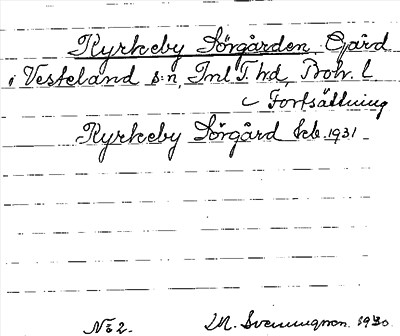 Kyrkeby Sörgården, Gård
i Vesteland s:n, Inl. T. hd, Boh. l
Fortsättning
Kyrkeby Sörgård Ječ. 1931
No 2. M. Svenungson. 1930.